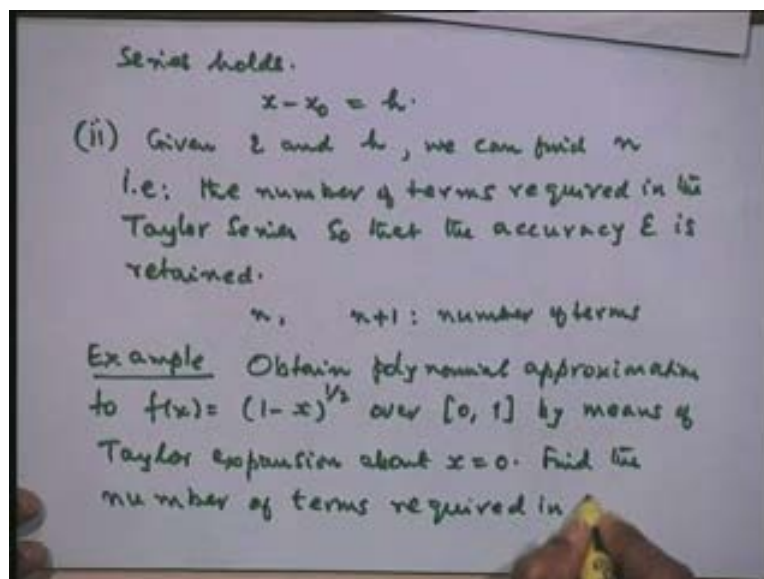 Series holds.
x - x₀ = h.
(ii) Given ε and h, we can find n
i.e: the number of terms required in the
Taylor Series so that the accuracy ε is
retained.
n, n+1: number of terms
Example Obtain polynomial approximation
to f(x) = (1-x)^1/2 over [0, 1] by means of
Taylor expansion about x = 0. Find the
number of terms required in